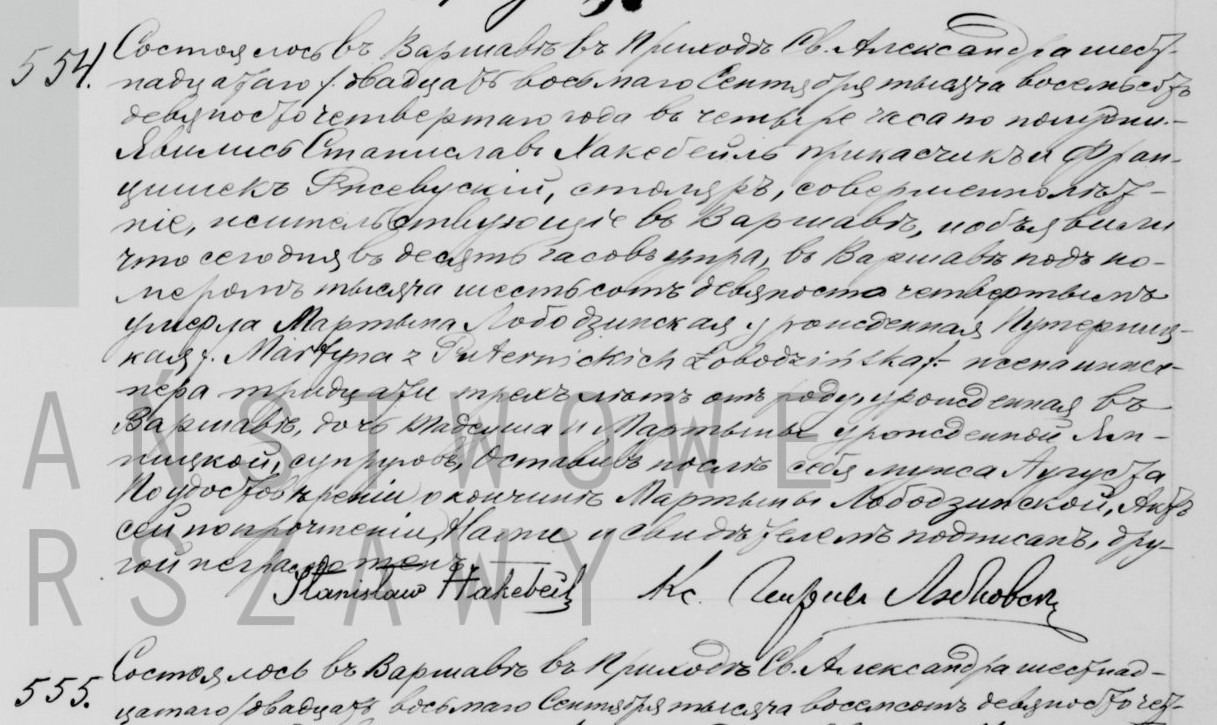 554. Состоялось въ Варшавѣ въ Приходѣ Св. Александра шест-
надцатаго /двадцать восьмаго Сентября тысяча восемьсотъ
девяносто четвертаго года въ четыре часа по полудни.-
Явились Станиславъ Хакебейль прикасчикъ и Фран-
цишекъ Рисевускій, столяръ, совершеннолѣт-
ніе, жительствующіе въ Варшавѣ, и объявили
что сегодня въ десять часовъ утра, въ Варшавѣ подъ но-
меромъ тысяча шестьсотъ девяносто четвертымъ
умерла Мартына Лободзинская урожденная Путерниц-
кая /: Martyna z Puternickich Łobodzińska /: жена
тридцати трехъ лѣтъ отъ роду, урожденная въ
Варшавѣ, дочь Фадеуша и Мартыны урожденной
супруговъ, Оставивъ послѣ себя мужа Августа
По удостовѣреніи о кончинѣ Мартыны Лободзинской, Актъ
сей по прочтеніи, Нами и свидѣтелемъ подписанъ, дру-
гой неграмотенъ.
Stanisław Hakebeil Кс.
AŃSTWOWE
RSZAWY
555. Состоялось въ Варшавѣ въ Приходѣ Св. Александра шестнад-
цатаго /двадцать восьмаго Сентября тысяча восемьсотъ девяносто чет-